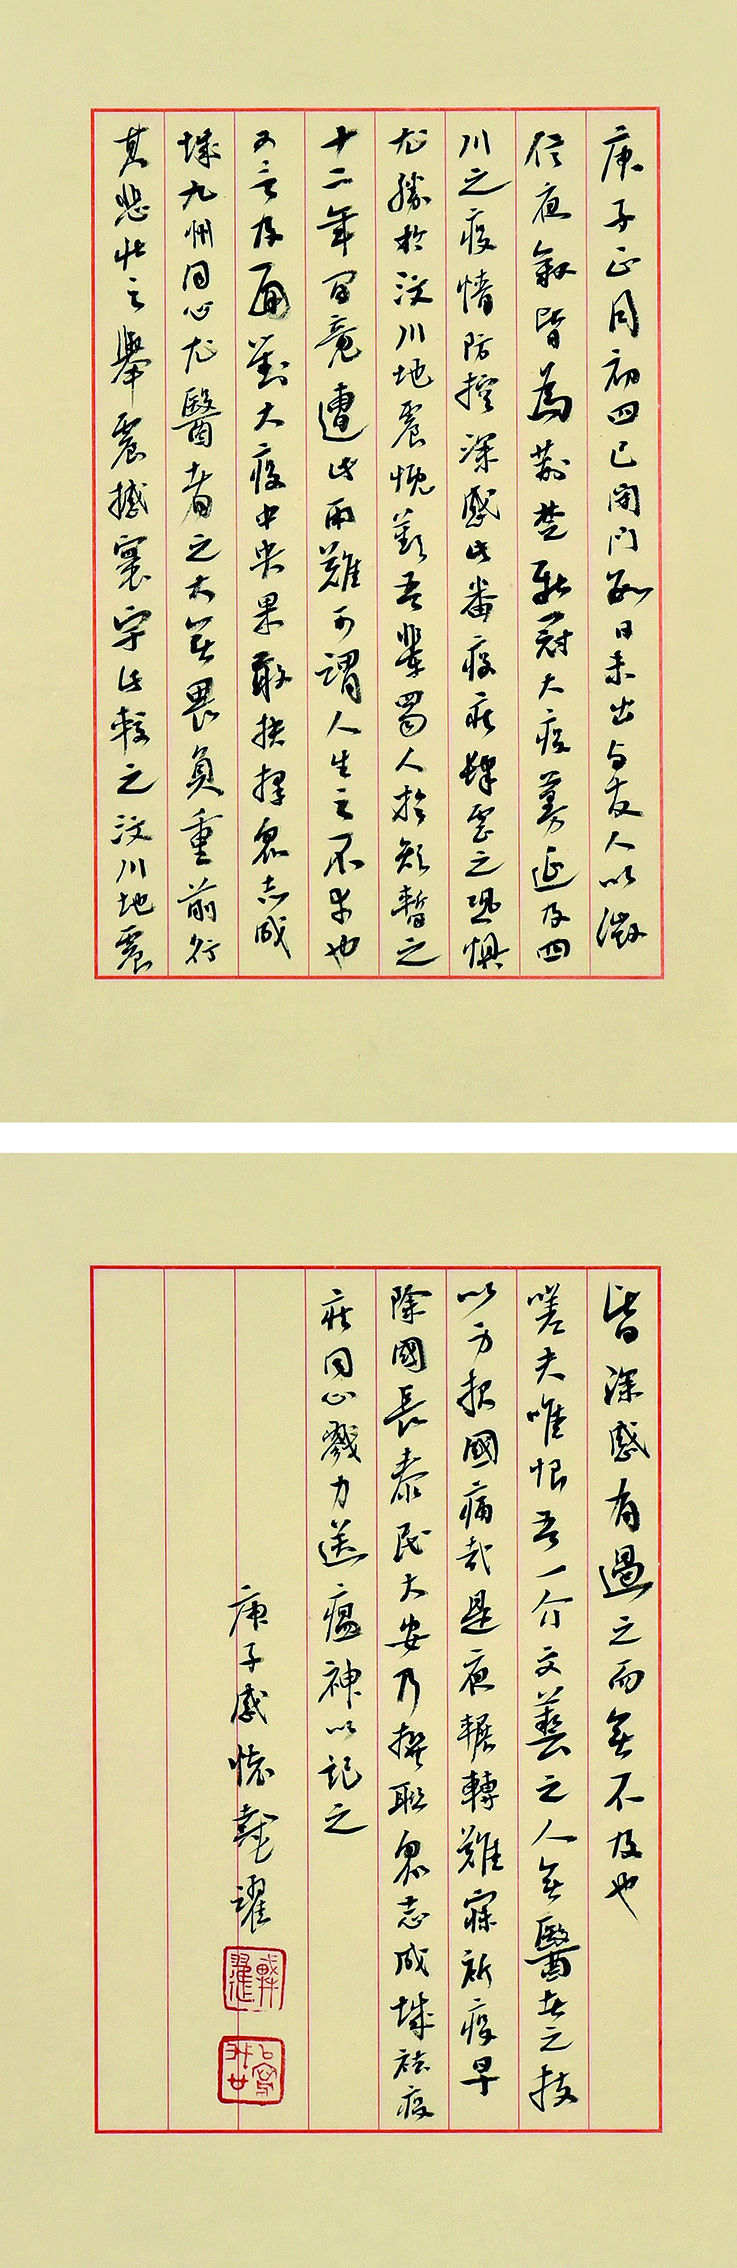 庚子正月初四已閉門數日未出與友人以微
信夜敘皆為荊楚新冠大疫蔓延及四
川之疫情防控深感此番疫症肆虐之恐懼
尤勝於汶川地震慨歎吾輩蜀人於短暫之
十二年間竟遭此兩難可謂人生之不幸也
又言及面對大疫中央果敢指揮眾志成
城九州同心尤醫者之大無畏負重前行
其悲壯之舉震撼寰宇此較之汶川地震
皆深感有過之而無不及也
嗟夫唯恨吾一介文藝之人無醫者之技
以可报國痛哉是夜輾轉難寐祈疫早
除國長泰民大安乃撰联眾志成城祛疫
症同心戮力送瘟神以記之
庚子感懷戴躍